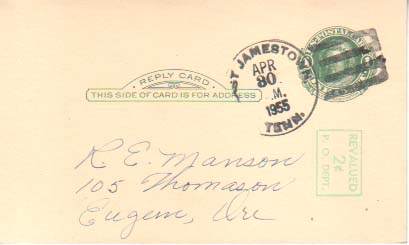 ST JAMESTOWN
APR
30
M.
1955
TENN.
REPLY CARD
THIS SIDE OF CARD IS FOR ADDRESS
REVALUED
2¢
P. O. DEPT.
R. E. Manson
105 Thomason
Eugene, Ore